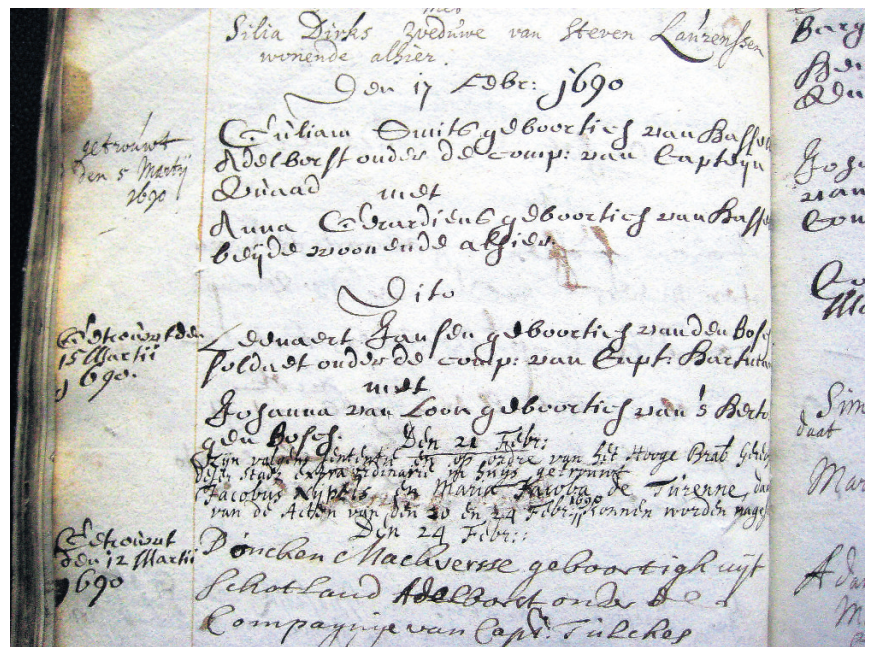 met
Silia Dirks weduwe van Steven Laurenssen
wonende alhier.
Den 17 Febr: 1690
getrouwt
den 5 Martij
1690
Guliam Smits geboortich van Hassel
Adelborst onder de comp: van Capteyn
Quaad met
Anna Gerardiens geboortich van Hassel
beijde woonende alhier
Dito
Getrouwt den
15 Martii
1690.
Leenaert Jansen geboortich van den Bosch
soldaet onder de comp: van Capt: Hartman
met
Johanna van Loon geboortich van 's Herto
gen Bosch.
Den 21 Febr:
Zijn volgens sententie en op ordre van het Hooge Brab
deser Stadt extra ordinarie in huijs getrouwt
Jacobus Nypels en Maria Jacoba de Turenne,
van de Acten van den 20 en 24 Febr: 1690 konnen worden
Den 24 Febr:
Getrouwt
den 12 Martii
1690
Duncken Mackversse geboortigh uijt
Schotland Adelborst onder de
Compagnie van Capt. Tulcken
Berg
Joha
van
Sim
daat
Mar
Adam
M